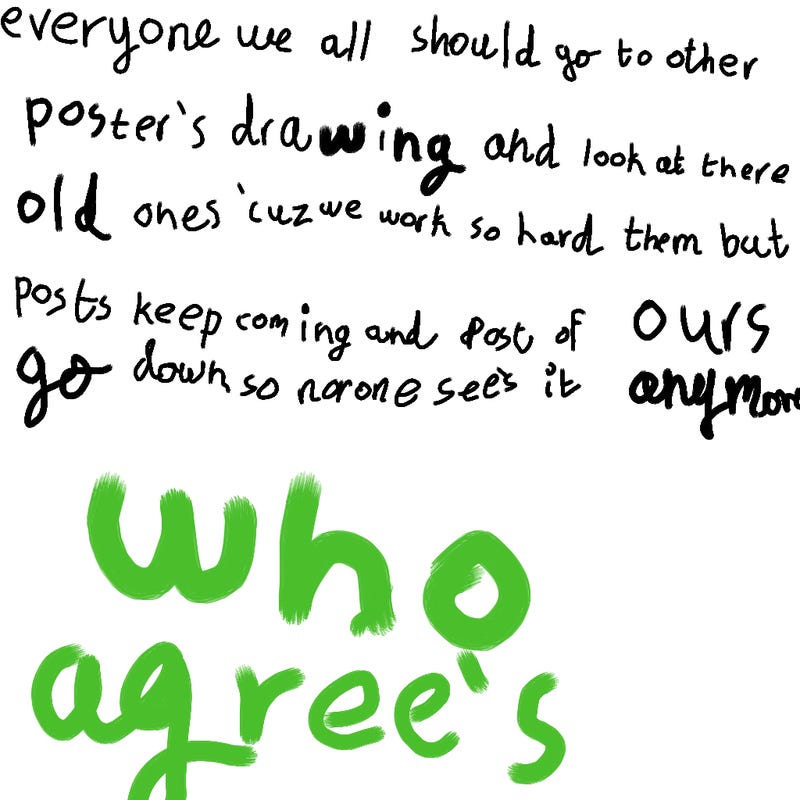 everyone we all should go to other
poster's drawing and look at there
old ones 'cuz we work so hard them but
posts keep coming and post of ours
go down so noone see's it anymore
who
agree's